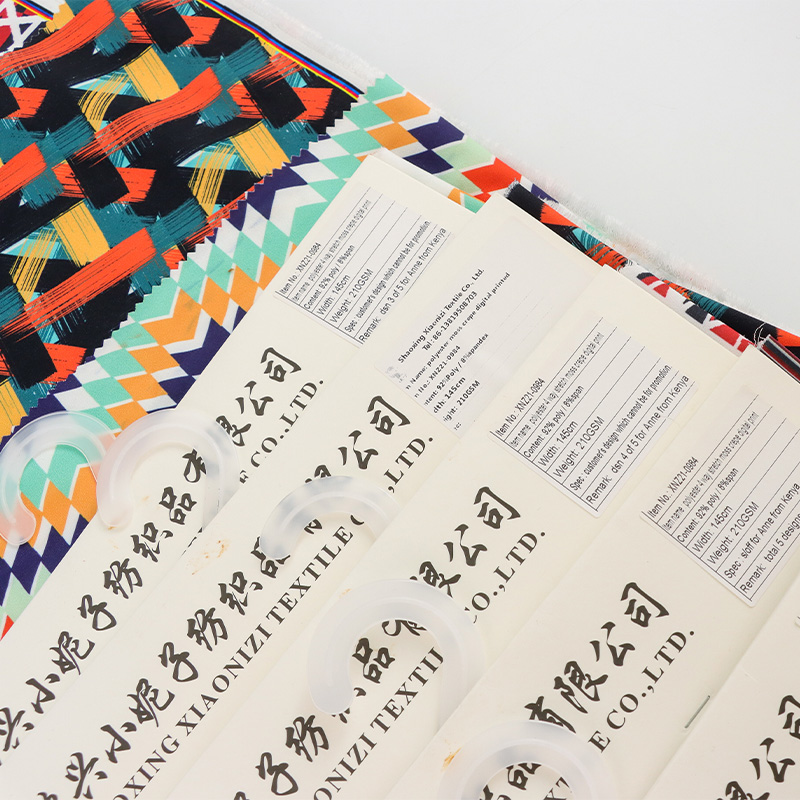 Item No.: XNZ21-0984
Item name: polyester 4 way stretch moss crepe digital print
Content: 92% poly / 8%span
Width: 145cm
Weight: 210GSM
Spec: customer's design which cannot be for promotion.
Remark: dsn 3 of 5 for Anne from Kenya
有限公司
CO.,LTD.
兴小妮子纺织品有限公司
Shaoxing Xiaonizi Textile Co., Ltd.
Tel: 86-13819508703
Name: polyester moss crepe digital printed
No.: XNZ21-0984
92%Poly / 8%spandex
145cm
210GSM
兴小妮子纺织品有限公司
OXING XIAONIZI TEXTILE CO.,LTD.
Item No.: XNZ21-0984
Item name: polyester 4 way stretch moss crepe digital print
Content: 92% poly / 8%span
Width: 145cm
Weight: 210GSM
Spec: customer's design which cannot be for promotion.
Remark: dsn 4 of 5 for Anne from Kenya
子纺织品有限公司
ONIZI TEXTIL CO.,LTD.
Item No.: XNZ21-0984
Item name: polyester 4 way stretch moss crepe digital print
Content: 92% poly / 8%span
Width: 145cm
Weight: 210GSM
Spec: stoff for Anne from Kenya
Remark: total 5 design
品有限公司
E CO.,LTD.